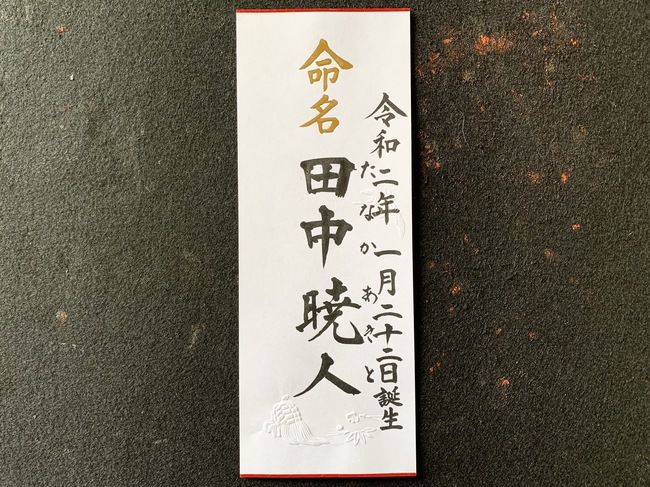 令和二年 一月二十二日誕生
たなか あきと
命名 田中 暁人